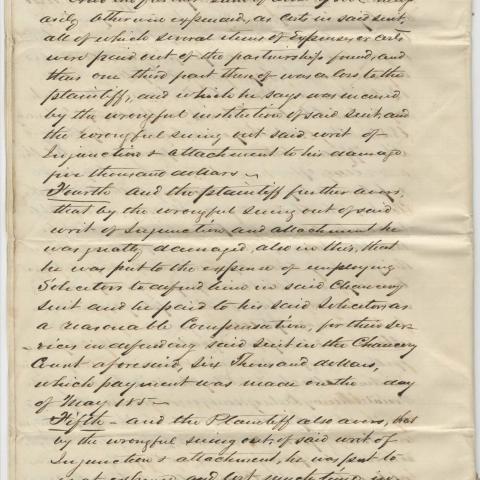 arily otherwise expended, as costs in said suit,
all of which several items of Expenses, or costs
were paid out of the partnership fund, and
thus one third part thereof was a loss to the
plaintiff, and which he says was incured
by the wrongful institution of said suit, and
the wrongful suing out said writ of
Injunction & attachment to his damage
five thousand dollars ~
Fourth and the plaintiff further avers,
that by the wrongful suing out of said
writ of Injunction and attachment he
was greatly damaged, also in this, that
he was put to the expense of employing
Solicitors to defend him in said Chancery
suit and he paid to his said Solicitors as
a reasonable Compensation, for their ser-
-vices in defending said suit in the Chancery
Court aforesaid, Six Thousand dollars,
which payment was made on the day
of May 185 ~
Fifth - and the Plaintiff also avers, that
by the wrongful suing out, of said writ of
Injunction & attachment, he was put to
great expense and lost much time in